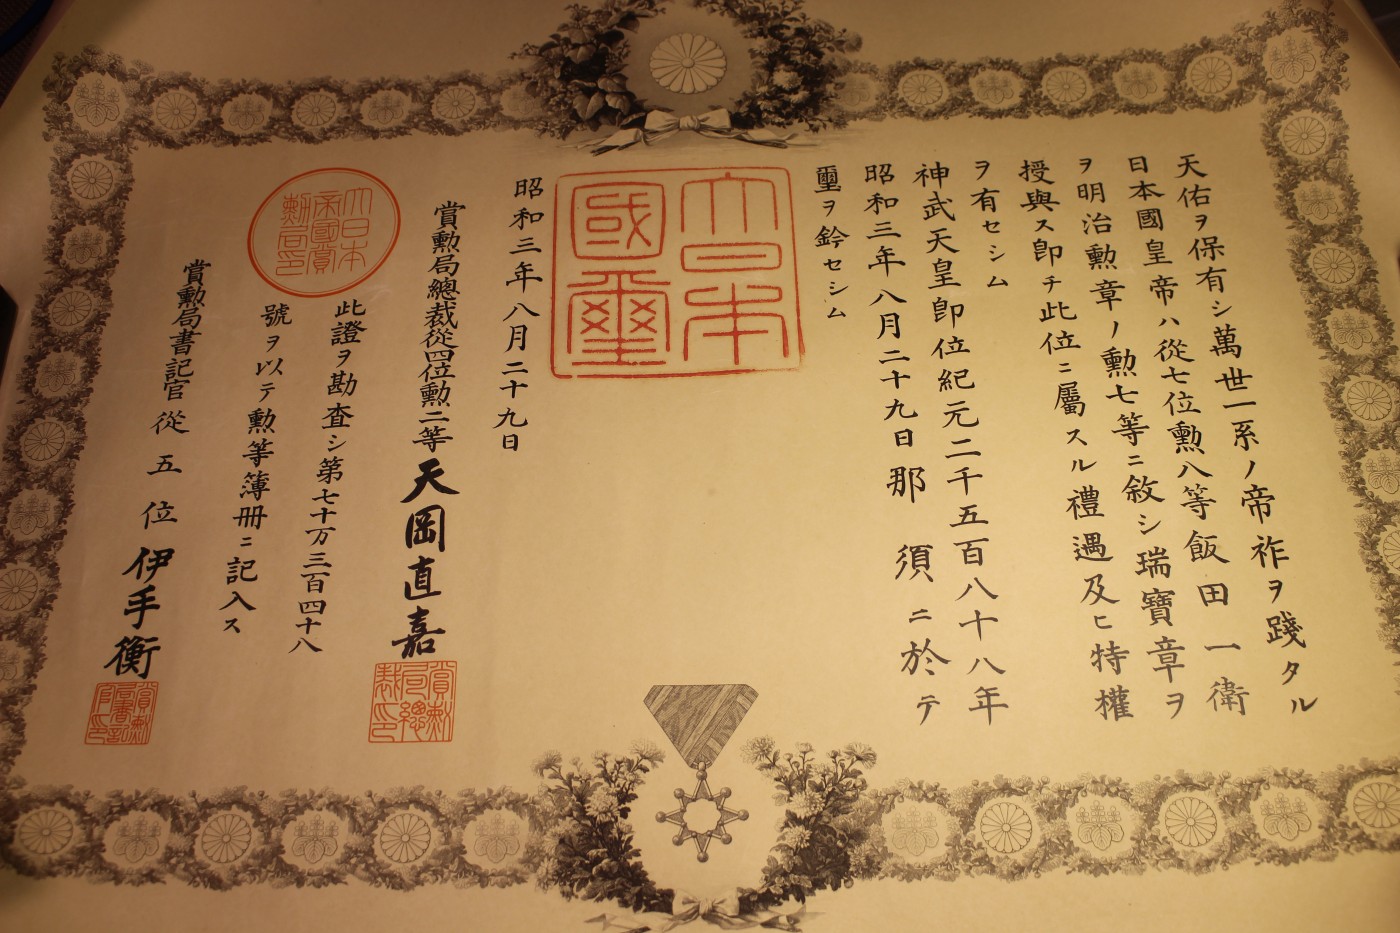 天佑ヲ保有シ萬世一系ノ帝祚ヲ踐タル
日本國皇帝ハ從七位勲八等飯田一衛
ヲ明治勲章ノ勲七等ニ敘シ瑞寶章ヲ
授與ス卽チ此位ニ屬スル禮遇及ヒ特權
ヲ有セシム
神武天皇卽位紀元二千五百八十八年
昭和三年八月二十九日那須ニ於テ
璽ヲ鈐セシム
大日本
國璽
昭和三年八月二十九日
賞勲局總裁從四位勲二等天岡直嘉
賞勲局總裁印
大日本帝國賞勲局印
此證ヲ勘査シ第七十万三百四十八
號ヲ以テ勲等簿冊ニ記入ス
賞勲局書記官從五位伊手衡
賞勲局書記官印